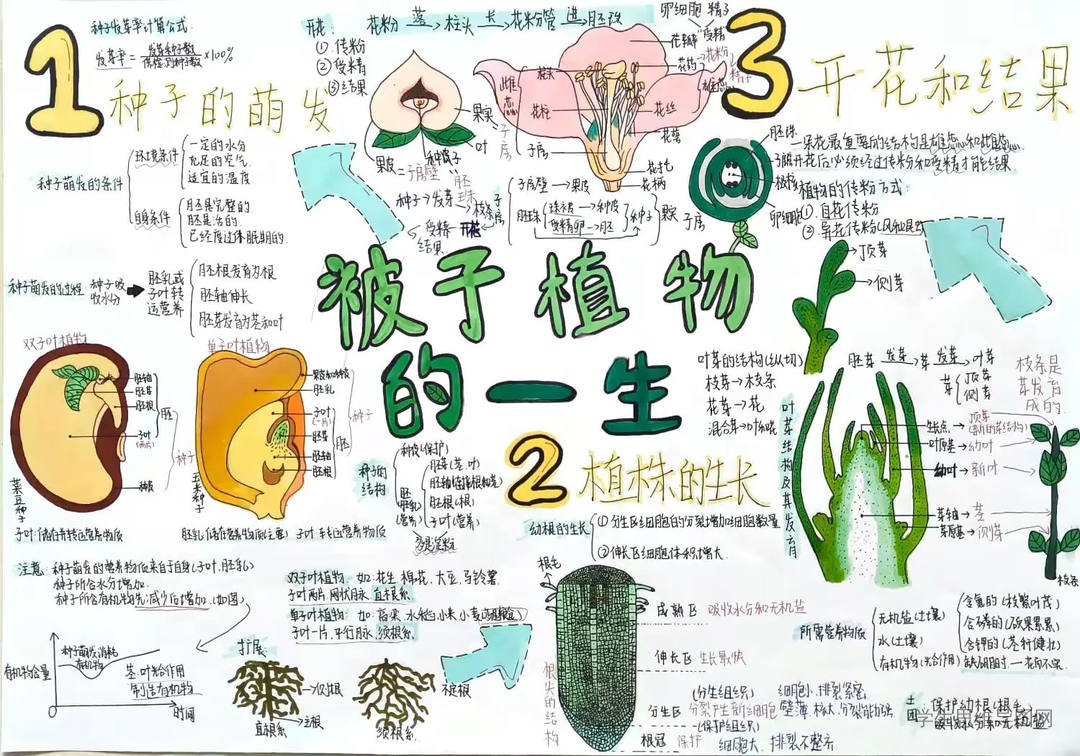 1 种子的萌发
种子发芽率计算公式:
发芽率=发芽种子数/供检测种子数×100%
种子萌发的条件
环境条件
一定的水分
充足的空气
适宜的温度
自身条件
胚是完整的
胚是活的
已经度过休眠期的.
种子萌发的过程
种子吸收水分
胚乳或子叶转运营养
胚根发育为根
胚轴伸长
胚芽发育为茎和叶
双子叶植物
胚轴
胚芽
胚根
子叶
(两片)
种皮
胚
种子
菜豆种子
子叶:储存并转运营养物质
单子叶植物
果皮和种皮
胚乳
子叶
(一片)
胚芽
胚轴
胚根
胚
种子
玉米种子
胚乳(储存营养物质(主要)
子叶 转运营养物质
种子的结构
种皮(保护)
胚
胚芽(茎.叶)
胚轴(连接根和茎)
胚根(根)
子叶(营养)
胚乳(营养)
注意:种子萌发的营养物质来自于自身(子叶,胚乳)
种子所含水分增加.
种子所含有机物先减少后增加.(如图)
有机物含量
种子萌发消耗有机物
茎.叶光合作用
制造有机物
时间
0
双子叶植物 如:花生 棉花.大豆.马铃薯
子叶两片.网状叶脉.直根系.
单子叶植物:如:高粱.水稻.小麦
子叶一片,平行脉,须根系.
扩展
侧根
主根
直根系
须根系
不定根
开花
①传粉
②受精
③结果
花粉 落→ 柱头 长→ 花粉管 进→ 胚珠
果实
叶
果皮=子房壁
子房
胚珠
种子→发芽→枝条
结果←受精←开花
卵细胞 精子
受精
花瓣
花药→花粉
花丝
雄蕊
雌蕊
柱头
花柱
子房
花萼
花托
花柄
子房壁→果皮
胚珠
珠被→种皮
受精卵→胚
种子
果实
子房
胚珠
卵细胞
3 开花和结果
一朵花最重要的结构是雄蕊和雌蕊.
子房开花后必须经过传粉和受精才能结果
植物的传粉方式:
①自花传粉
②异花传粉
被子植物的一生
2 植株的生长
幼根的生长
①分生区细胞的分裂增加细胞数量
②伸长区细胞体积增大
根毛
根尖的结构
成熟区 吸收水分和无机盐
伸长区 生长最快
(分生组织)
分生区 分裂产生新细胞
细胞小.排裂紧密
壁薄.核大.分裂能力强
(保护组织)
根冠 保护
细胞大.排裂不整齐.
顶芽
侧芽
叶芽的结构(纵切)
枝芽→枝条
花芽→花
混合芽→叶和花
胚芽 发芽→ 芽 发芽→ 叶芽
芽
顶芽
侧芽
枝条是芽发育成的.
叶芽结构及其发育
生长点→顶芽
叶原基→幼叶
幼叶→新叶
芽轴→茎
芽原基→侧芽
枝条
所需营养物质
无机盐(土壤)
水(土壤)
有机物(光合作用)
含氮的(枝繁叶茂)
含磷的(硕果累累)
含钾的(茎秆健壮)
缺硼时:一花而不实.
土团
保护幼根和根毛